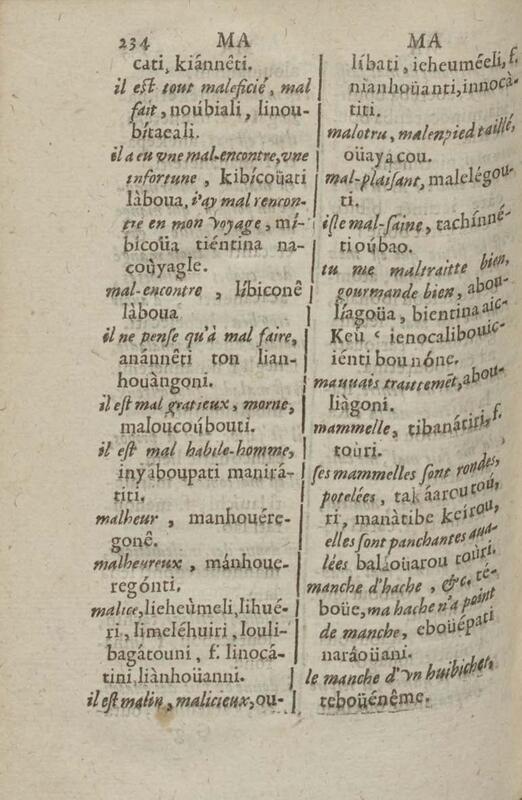 234 MA
cati, kiánnêti.
il est tout maleficié, mal
fait, noúbiali, linou-
bítacali.
il a eu vne mal-encontre, vne
infortune, kibícoüati
làboua, i'ay mal rencon-
tre en mon voyage, mí-
bícoüa tiéntina na-
coùyagle.
mal-encontre, líbiconê
làboua
il ne pense qu'à mal faire,
anánnêti ton lian-
houàngoni.
il est mal gratieux, morne,
maloucoúbouti.
il est mal habile-homme,
inyaboupati manirá-
titi.
malheur, manhouére-
gonê.
malheureux, mánhoue-
regónti.
malice, lieheùmeli, lihué-
ri, limeléhuiri, louli-
bagátouni, f. linocá-
tini, liànhoüanni.
il est malin, malicieux, ou-
MA
líbati, ieheuméeli, f.
nianhoüanti, innocà-
titi.
malotru, malenpied taillé,
oüayacou.
mal-plaisant, malelégou-
ti.
isle mal-saine, tachínné-
ti oúbao.
tu me maltraitte bien,
gourmande bien, abou-
líagoüa, bientina aic-
Keú c ienocalibouic-
iénti bou nóne.
mauuais traittemẽt, abou-
liàgoni.
mammelle, tibanátiri, f.
toùri.
ses mammelles sont rondes,
potelées, takáaroutou,
ri, manàtibe keirou,
elles sont panchantes aua-
lées balàoüarou toùri.
manche d'hache, &c. té-
boüe, ma hache n'a point
de manche, eboüépati
narâoüani.
le manche d'vn huibichet,
teboüénême.